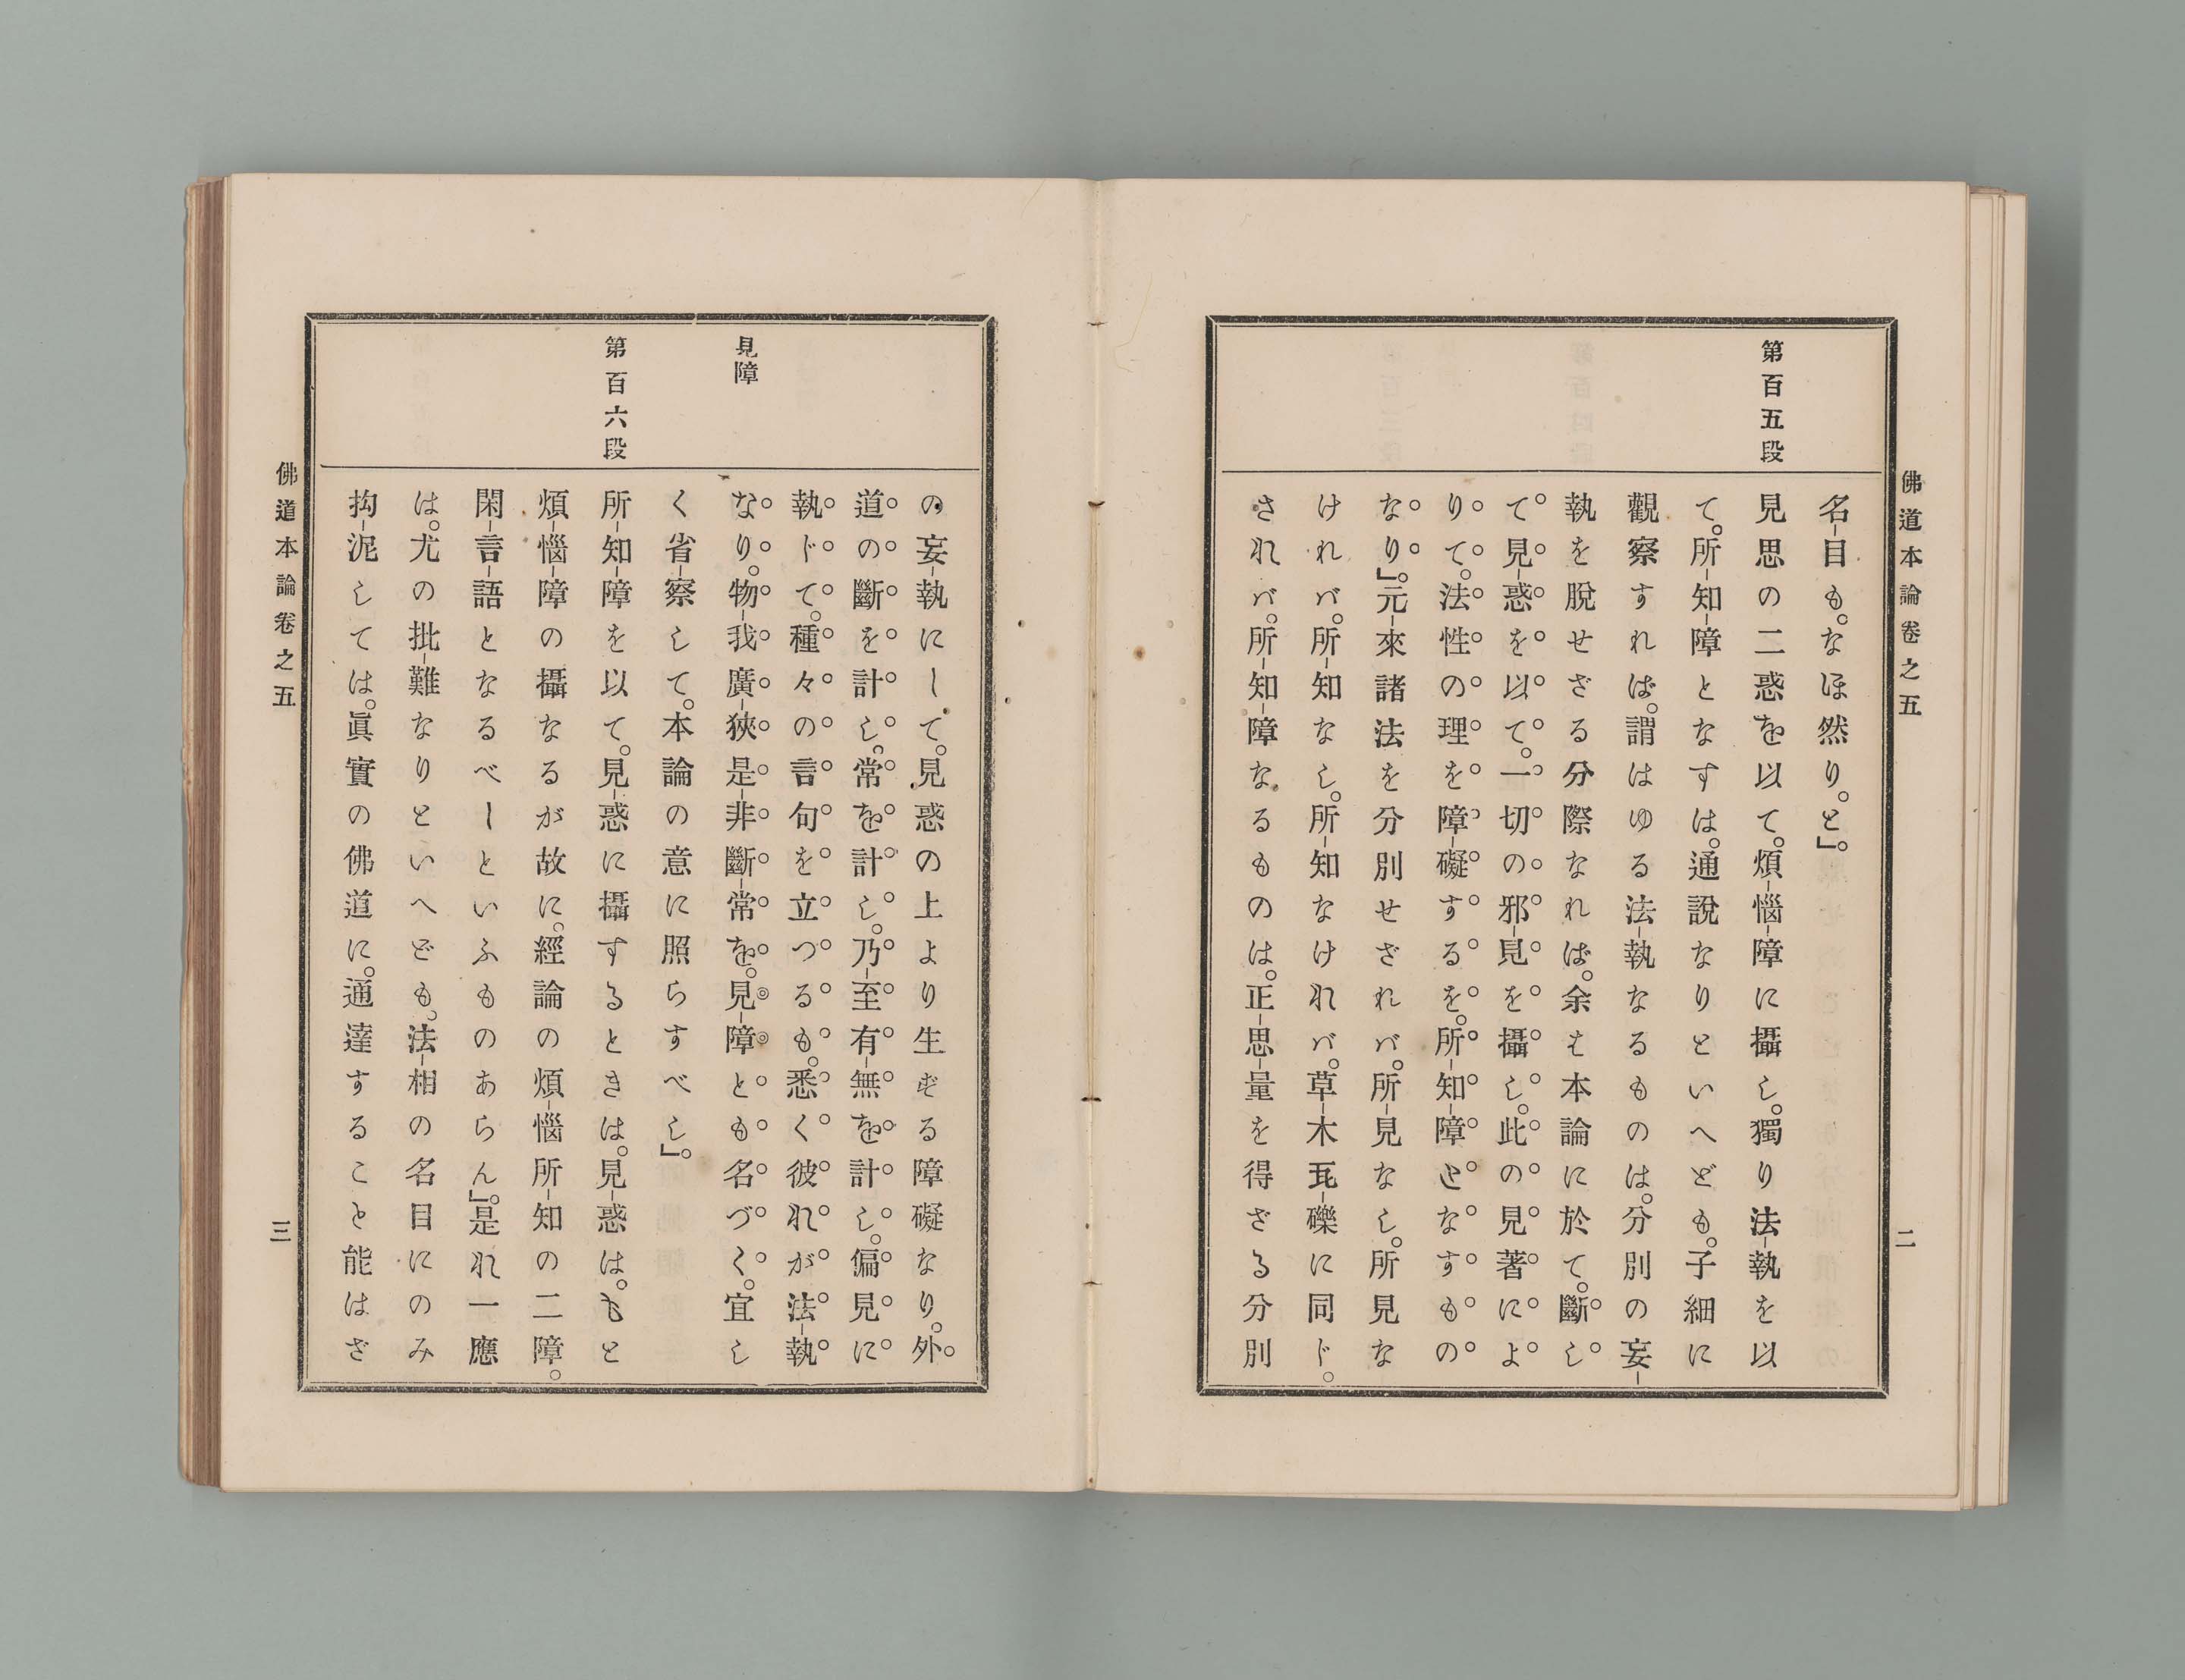 佛道本論卷之五
二
第百五段
名目も。なほ然り。と」。
見思の二惑を以て。煩惱障に攝し。獨り法執を以
て。所知障となすは。通說なりといへども。子細に
觀察すれば。謂はゆる法執なるものは。分別の妄
執を脫せざる分際なれば。余は本論に於て。斷し
て見惑を以て。一切の邪見を攝し。此の見著によ
りて。法性の理を障礙するを。所知障となすもの
なり」。元來諸法を分別せざれバ。所見なし。所見な
けれバ。所知なし。所知なけれバ。草木瓦礫に同ド。
されバ。所知障なるものは。正思量を得ざる分別
の妄執にして。見惑の上より生ずる障礙なり。外
道の斷を計し。常を計し。乃至有無を計し。偏見に
執ドて。種々の言句を立つるも。悉く彼れが法執
なり。物我廣狹是非斷常を。見障とも名づく。宜し
く省察して。本論の意に照らすべし」。
所知障を以て。見惑に攝するときは。見惑は。もと
煩惱障の攝なるが故に。經論の煩惱所知の二障。
閑言語となるべしといふものあらん」。是れ一應
は。尤の批難なりといへども。法相の名目にのみ
拘泥しては。眞實の佛道に。通達すること能はざ
見障
第百六段
佛道本論卷之五
三